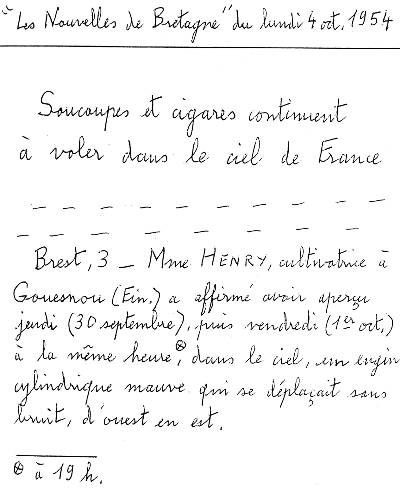 "Les Nouvelles de Bretagne" du lundi 4 oct. 1954
Soucoupes et cigares continuent
à voler dans le ciel de France
Brest, 3 — Mme HENRY, cultivatrice à
Gouesnou (Fin.) a affirmé avoir aperçu
jeudi (30 septembre), puis vendredi (1er oct.)
à la même heure⊗, dans le ciel, un engin
cylindrique mauve qui se déplaçait sans
bruit, d'ouest en est.
⊗ à 19 h.